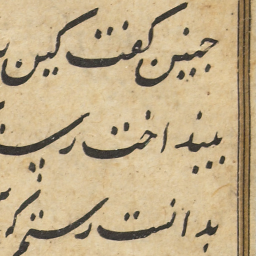 چنین گفت کین
بینداخت
بدانست رستم که